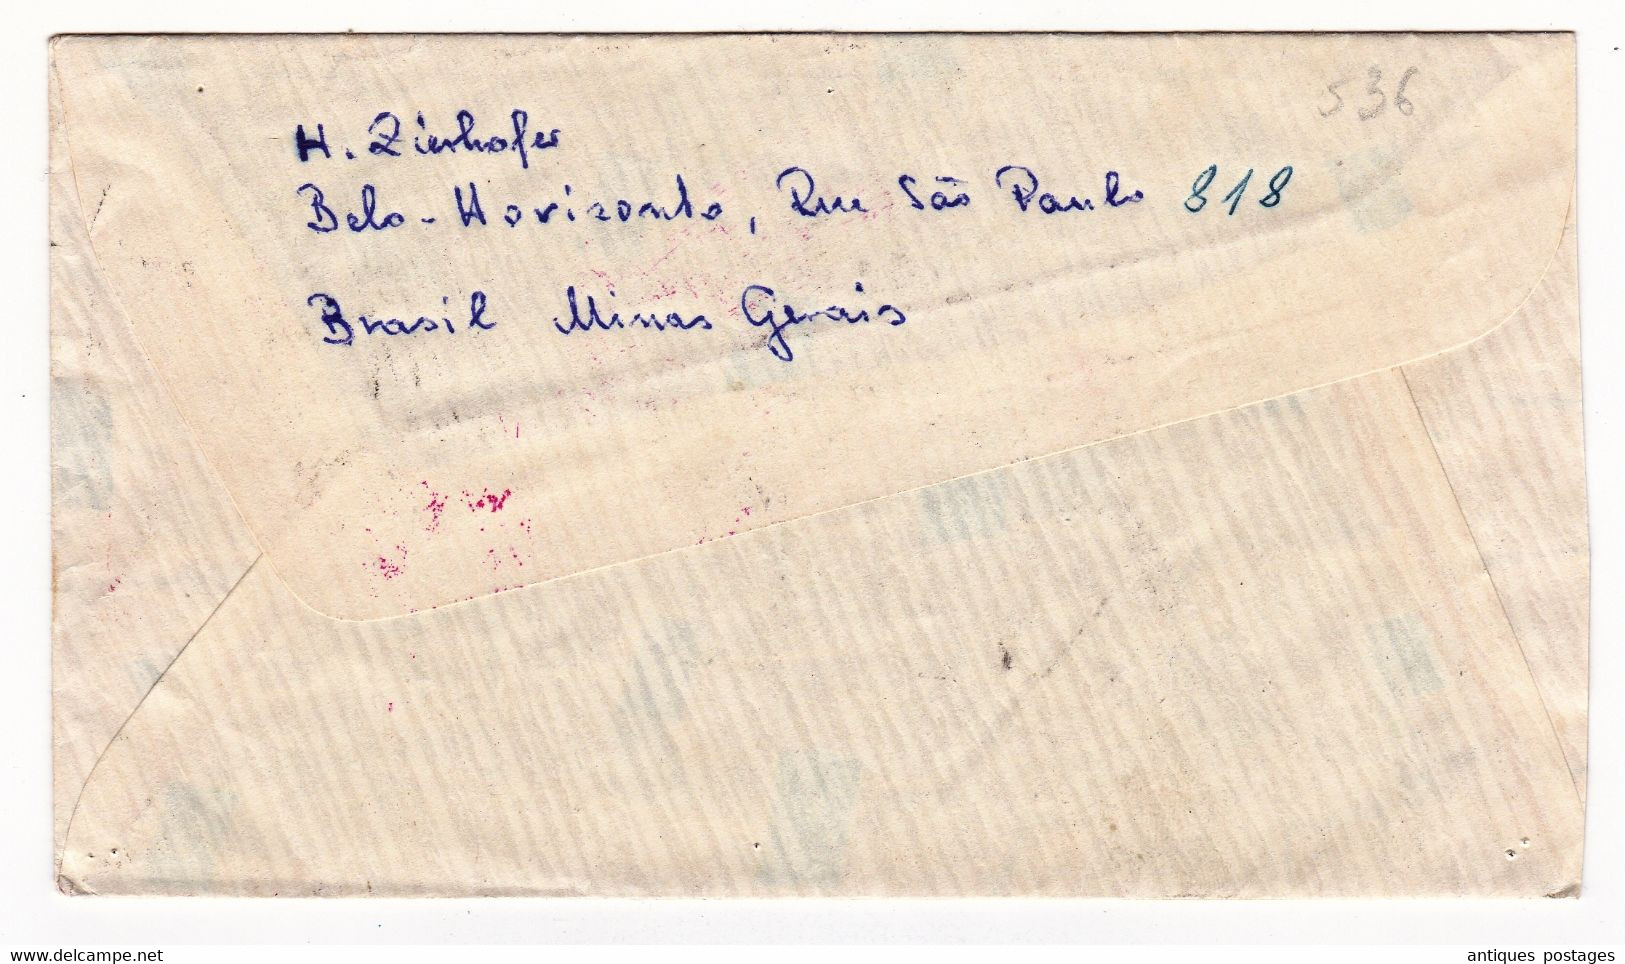 536
H. Zierhofer
Belo-Horizonte, Rue São Paulo 818
Brasil Minas Gerais
antiques postages